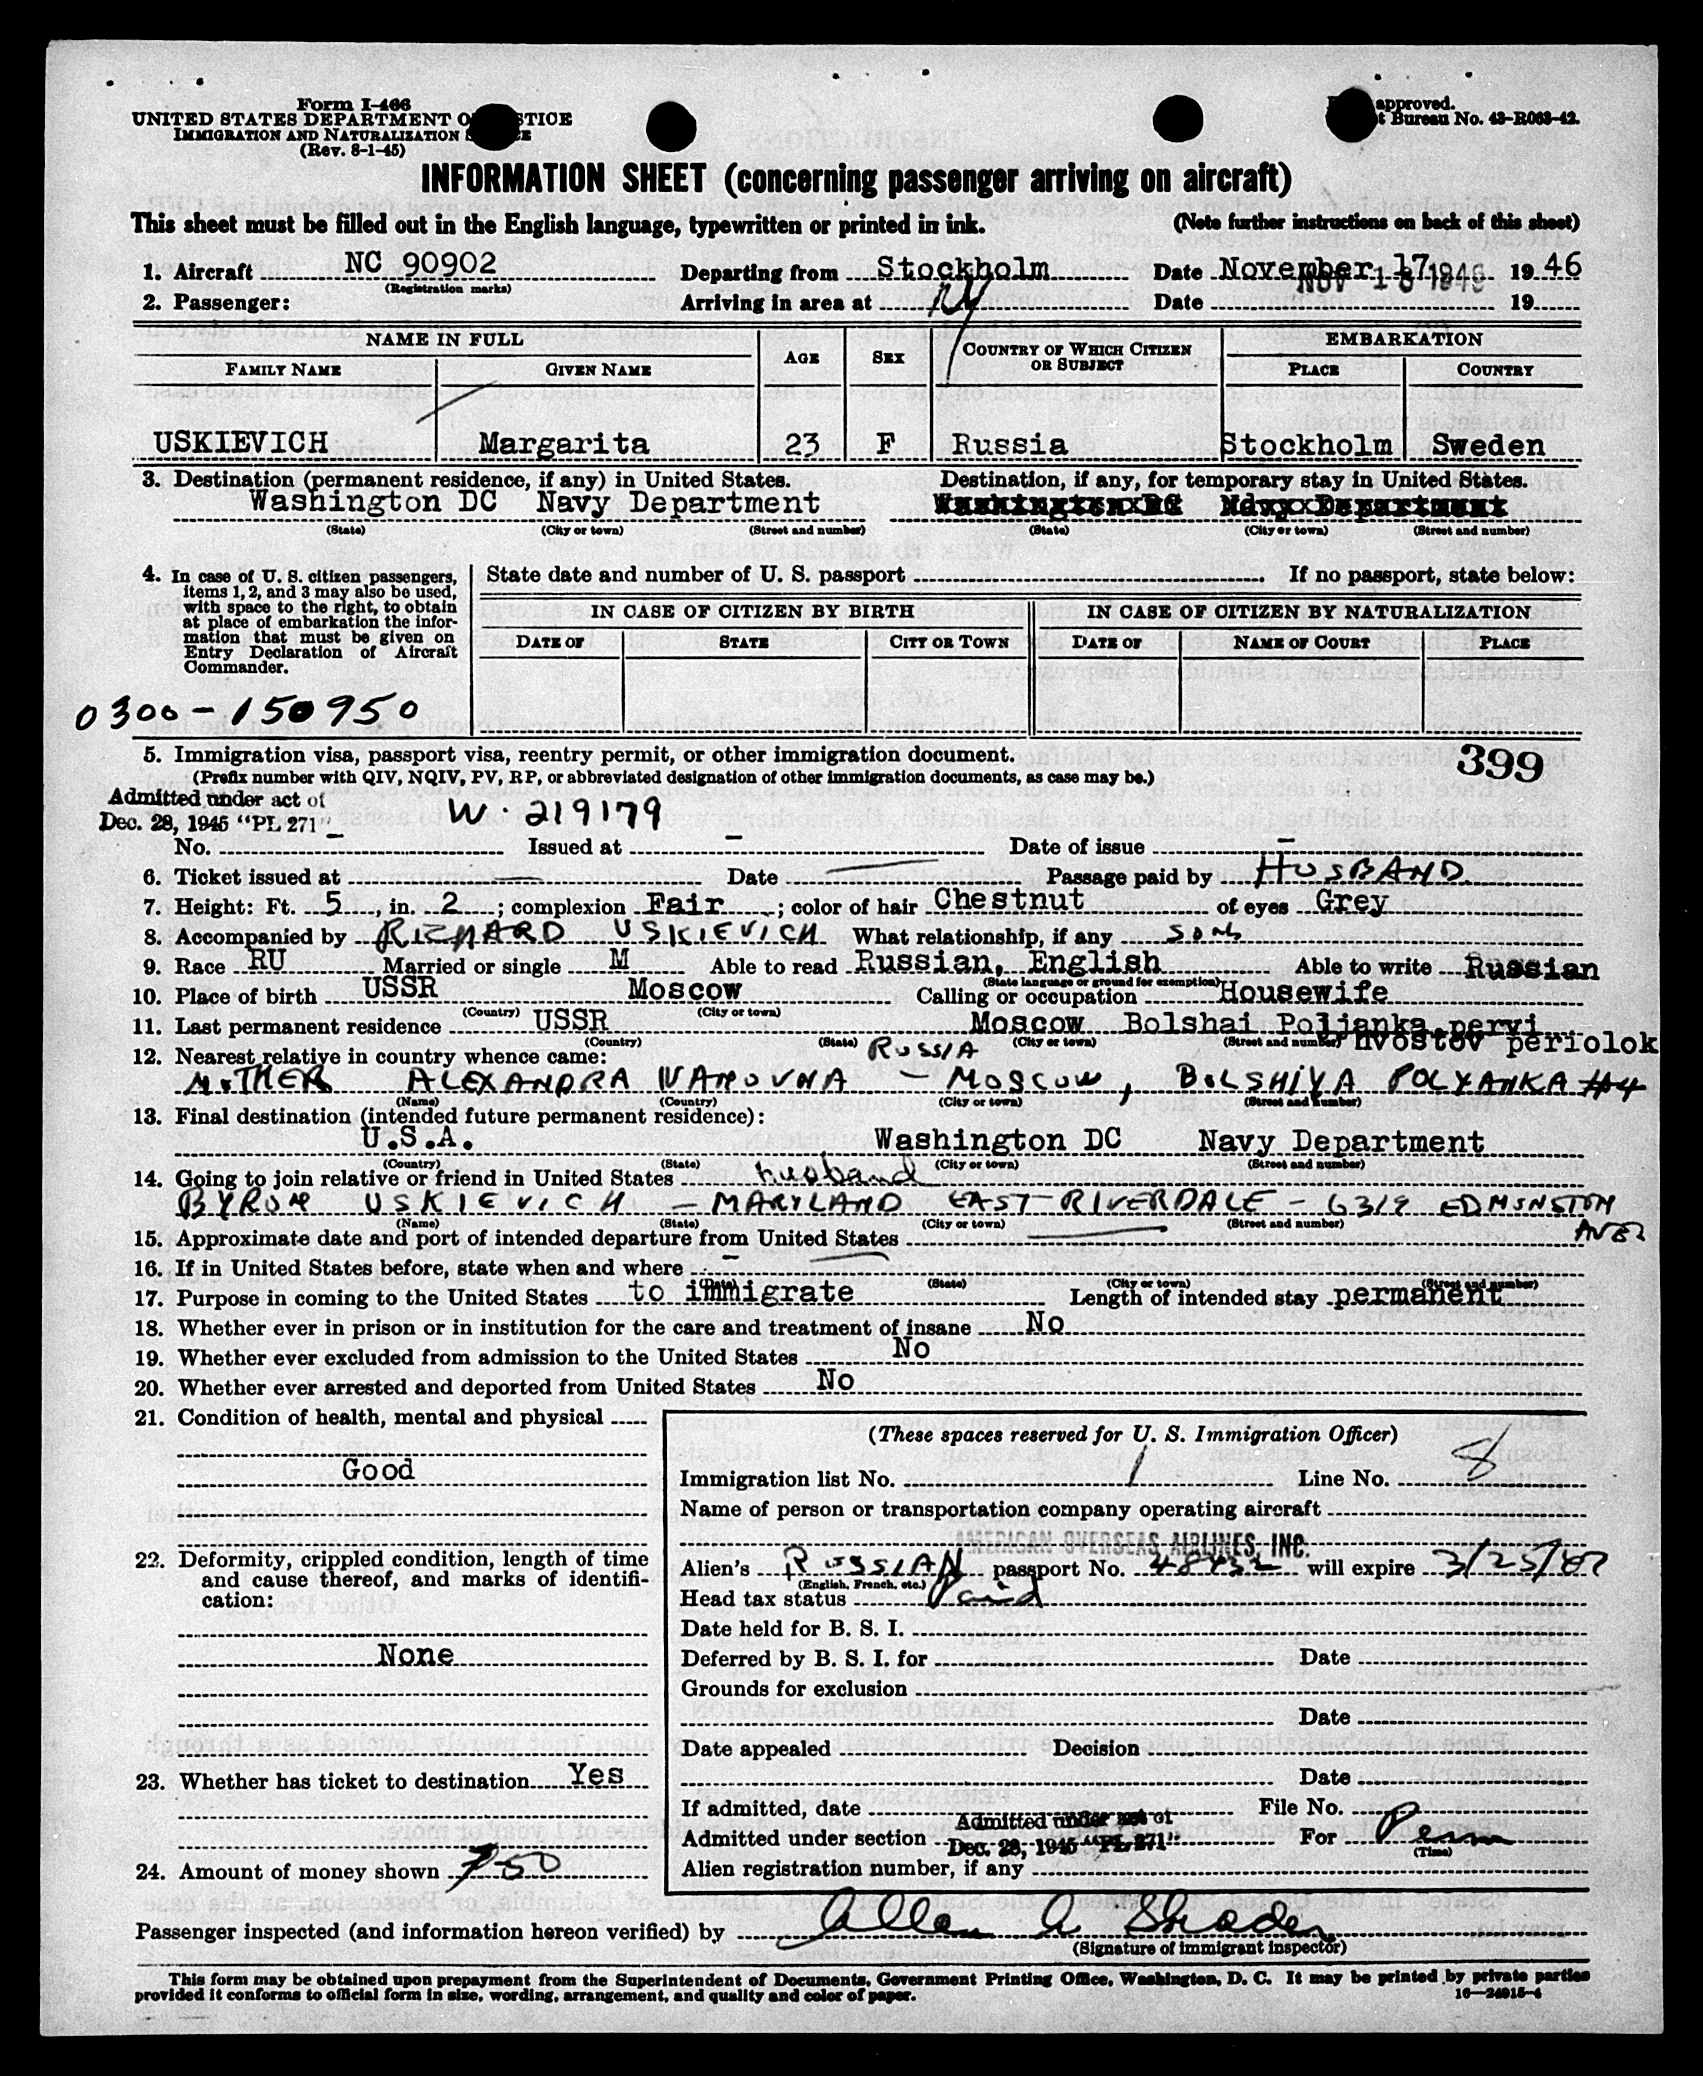 Form I-466
UNITED STATES DEPARTMENT OF JUSTICE
IMMIGRATION AND NATURALIZATION SERVICE
(Rev. 8-1-45)
approved.
t Bureau No. 43-R063-42.
INFORMATION SHEET (concerning passenger arriving on aircraft)
This sheet must be filled out in the English language, typewritten or printed in ink. (Note further instructions on back of this sheet)
1. Aircraft NC 90902 Departing from Stockholm Date November 17, 19 46
(Registration marks) NOV 18 1946
2. Passenger: Arriving in area at NY Date 19
NAME IN FULL AGE SEX COUNTRY OF WHICH CITIZEN OR SUBJECT EMBARKATION
FAMILY NAME GIVEN NAME PLACE COUNTRY
USKIEVICH Margarita 23 F Russia Stockholm Sweden
3. Destination (permanent residence, if any) in United States. Destination, if any, for temporary stay in United States.
Washington DC Navy Department Washington DC Navy Department
(State) (City or town) (Street and number) (State) (City or town) (Street and number)
4. In case of U. S. citizen passengers, items 1, 2, and 3 may also be used, with space to the right, to obtain at place of embarkation the information that must be given on Entry Declaration of Aircraft Commander.
State date and number of U. S. passport If no passport, state below:
IN CASE OF CITIZEN BY BIRTH IN CASE OF CITIZEN BY NATURALIZATION
DATE OF STATE CITY OR TOWN DATE OF NAME OF COURT PLACE
0300-150950
5. Immigration visa, passport visa, reentry permit, or other immigration document. 399
(Prefix number with QIV, NQIV, PV, RP, or abbreviated designation of other immigration documents, as case may be.)
Admitted under act of
Dec. 28, 1945 "PL 271" W. 219179
No. - Issued at - Date of issue -
6. Ticket issued at — Date — Passage paid by HUSBAND
7. Height: Ft. 5, in. 2; complexion Fair; color of hair Chestnut of eyes Grey
8. Accompanied by RICHARD USKIEVICH What relationship, if any SON
9. Race RU Married or single M Able to read Russian, English Able to write Russian
(State language or ground for exemption)
10. Place of birth USSR Moscow Calling or occupation Housewife
(Country) (City or town)
11. Last permanent residence USSR Moscow Bolshai Poljanka, pervi
(Country) (State) (City or town) (Street and number) hvostov periolok
12. Nearest relative in country whence came: RUSSIA
MOTHER ALEXANDRA IVANOVNA - MOSCOW, BOLSHIYA POLYANKA #4
(Name) (Country) (City or town) (Street and number)
13. Final destination (intended future permanent residence):
U.S.A. Washington DC Navy Department
(Country) (State) (City or town) (Street and number)
14. Going to join relative or friend in United States husband
BYRON USKIEVICH - MARYLAND EAST-RIVERDALE - 6319 EDMONSTON AVE
(Name) (State) (City or town) (Street and number)
15. Approximate date and port of intended departure from United States —
16. If in United States before, state when and where -
(Date) (State) (City or town) (Street and number)
17. Purpose in coming to the United States to immigrate Length of intended stay permanent
18. Whether ever in prison or in institution for the care and treatment of insane No
19. Whether ever excluded from admission to the United States No
20. Whether ever arrested and deported from United States No
21. Condition of health, mental and physical
Good
22. Deformity, crippled condition, length of time and cause thereof, and marks of identification:
None
23. Whether has ticket to destination Yes
24. Amount of money shown 750
(These spaces reserved for U. S. Immigration Officer)
Immigration list No. 1 Line No. 8
Name of person or transportation company operating aircraft
AMERICAN OVERSEAS AIRLINES, INC.
Alien's RUSSIAN passport No. 48432 will expire 3/25/87
(English, French, etc.)
Head tax status Paid
Date held for B. S. I.
Deferred by B. S. I. for Date
Grounds for exclusion
Date
Date appealed Decision
Date
If admitted, date File No.
Admitted under act of
Admitted under section Dec. 28, 1945 "PL 271" For Perm
(Time)
Alien registration number, if any
Passenger inspected (and information hereon verified) by Allen A Shrader
(Signature of immigrant inspector)
This form may be obtained upon prepayment from the Superintendent of Documents, Government Printing Office, Washington, D. C. It may be printed by private parties
provided it conforms to official form in size, wording, arrangement, and quality and color of paper. 16—24915-4